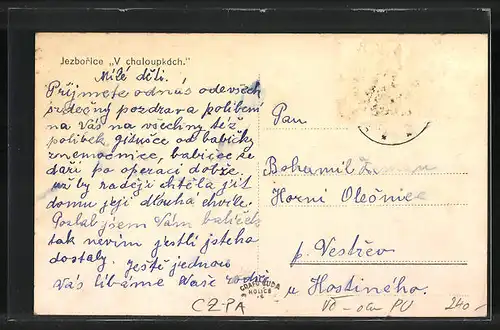 Jezbořice „V chaloupkách."
Milé děti.
Přijmete od nás ode všech
srdečný pozdrav a polibení
na Vás na všechny též
polibek Gitušce od babičky
z nemocnice, babičce se
daří po operaci dobře
už by raději chtěla jít
domu její dlouhá chvíle.
Poslal jsem Vám balíček
tak nevim jestli jste ho
dostaly. Ještě jednou
Vás líbáme Vaše
Pan
Bohumil
Horní Olešnice
p. Vestřev
u Hostiného.
GRAFO ČUDA
HOLICE
CZPA
240.-